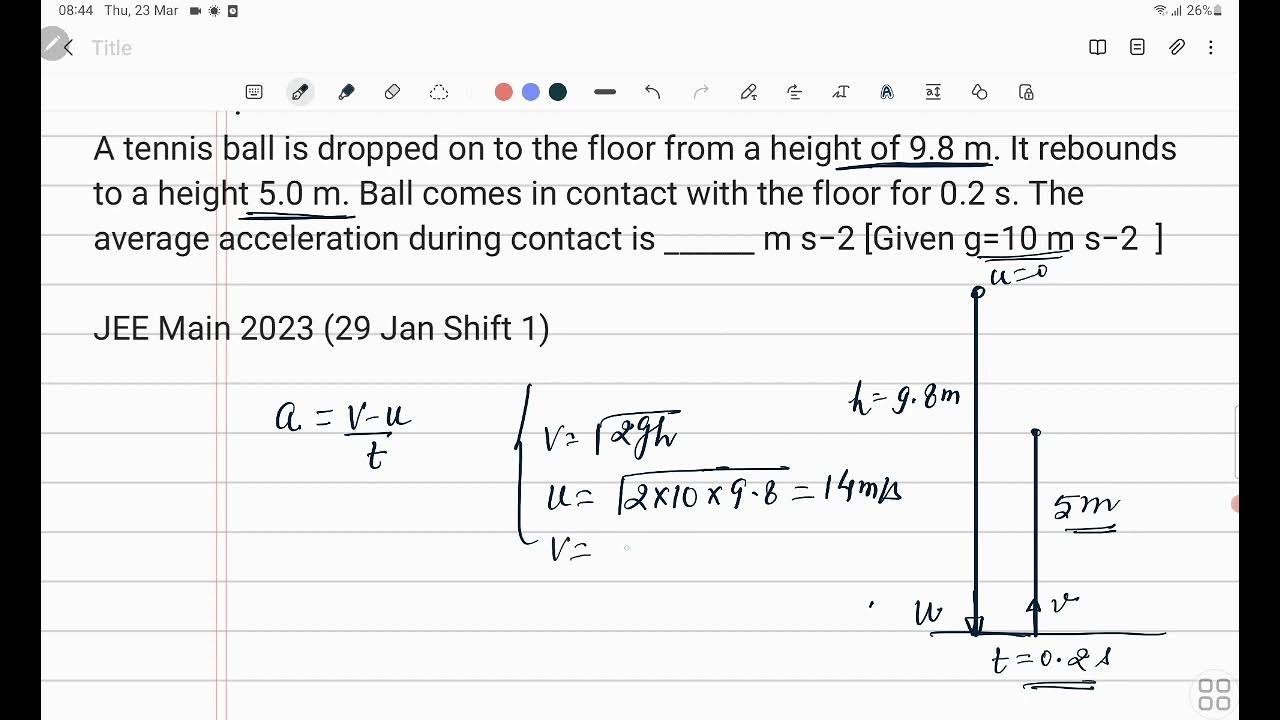 08:44 Thu, 23 Mar
26%
Title
A tennis ball is dropped on to the floor from a height of 9.8 m. It rebounds
to a height 5.0 m. Ball comes in contact with the floor for 0.2 s. The
average acceleration during contact is ______ m s−2 [Given g=10 m s−2 ]
u=0
JEE Main 2023 (29 Jan Shift 1)
h=9.8m
a = v-u/t
v= √2gh
u= √2×10×9.8 = 14m/s
5m
v=
u
v
t=0.2s